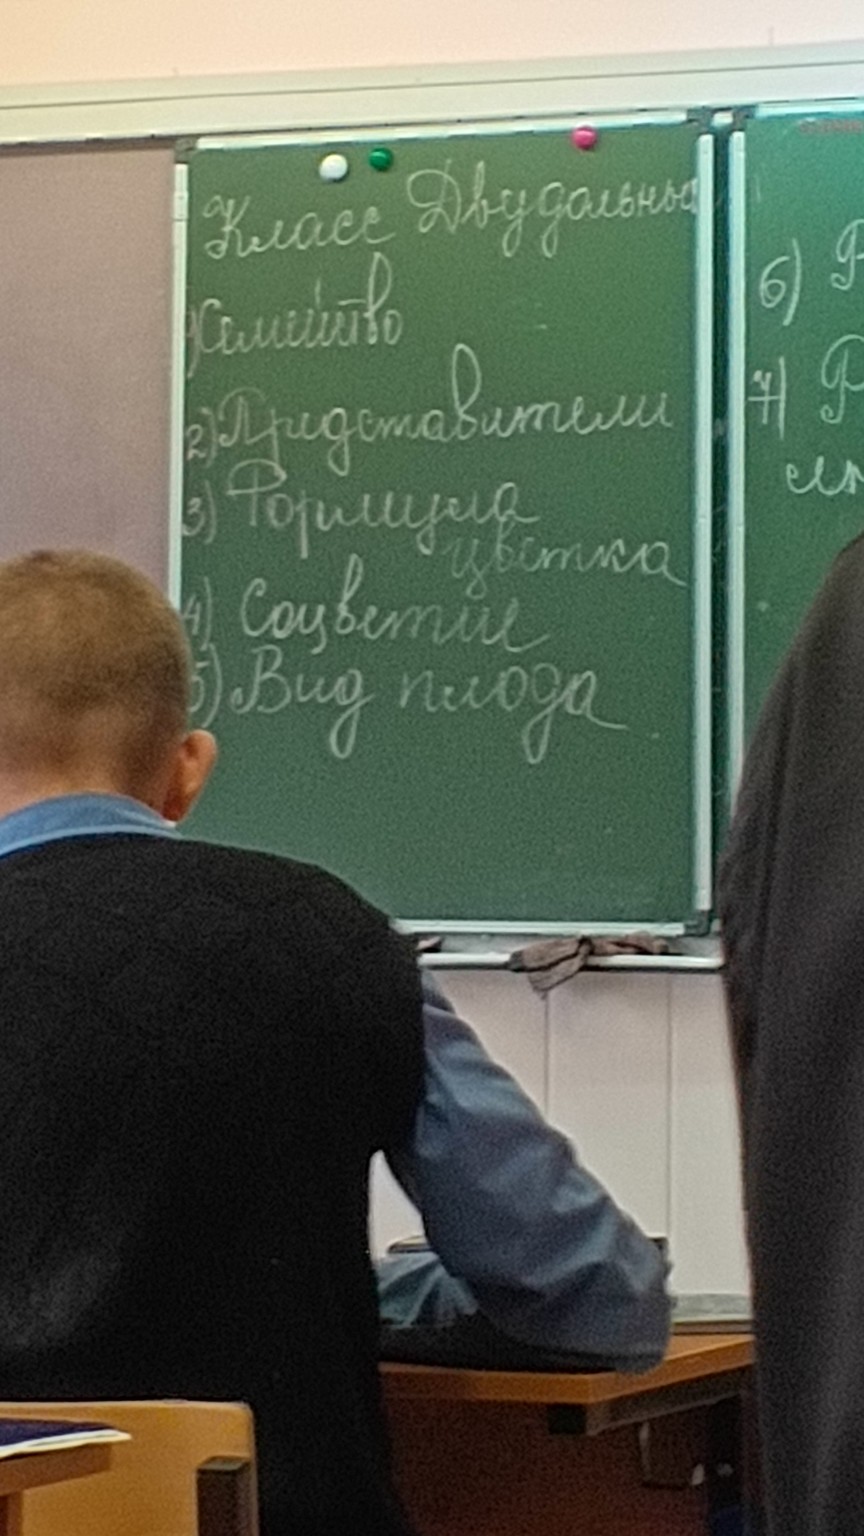 Класс Двудольны
1) Семейство
2) Представители
3) Формула
цветка
4) Соцветие
5) Вид плода
6) Р
7) Р